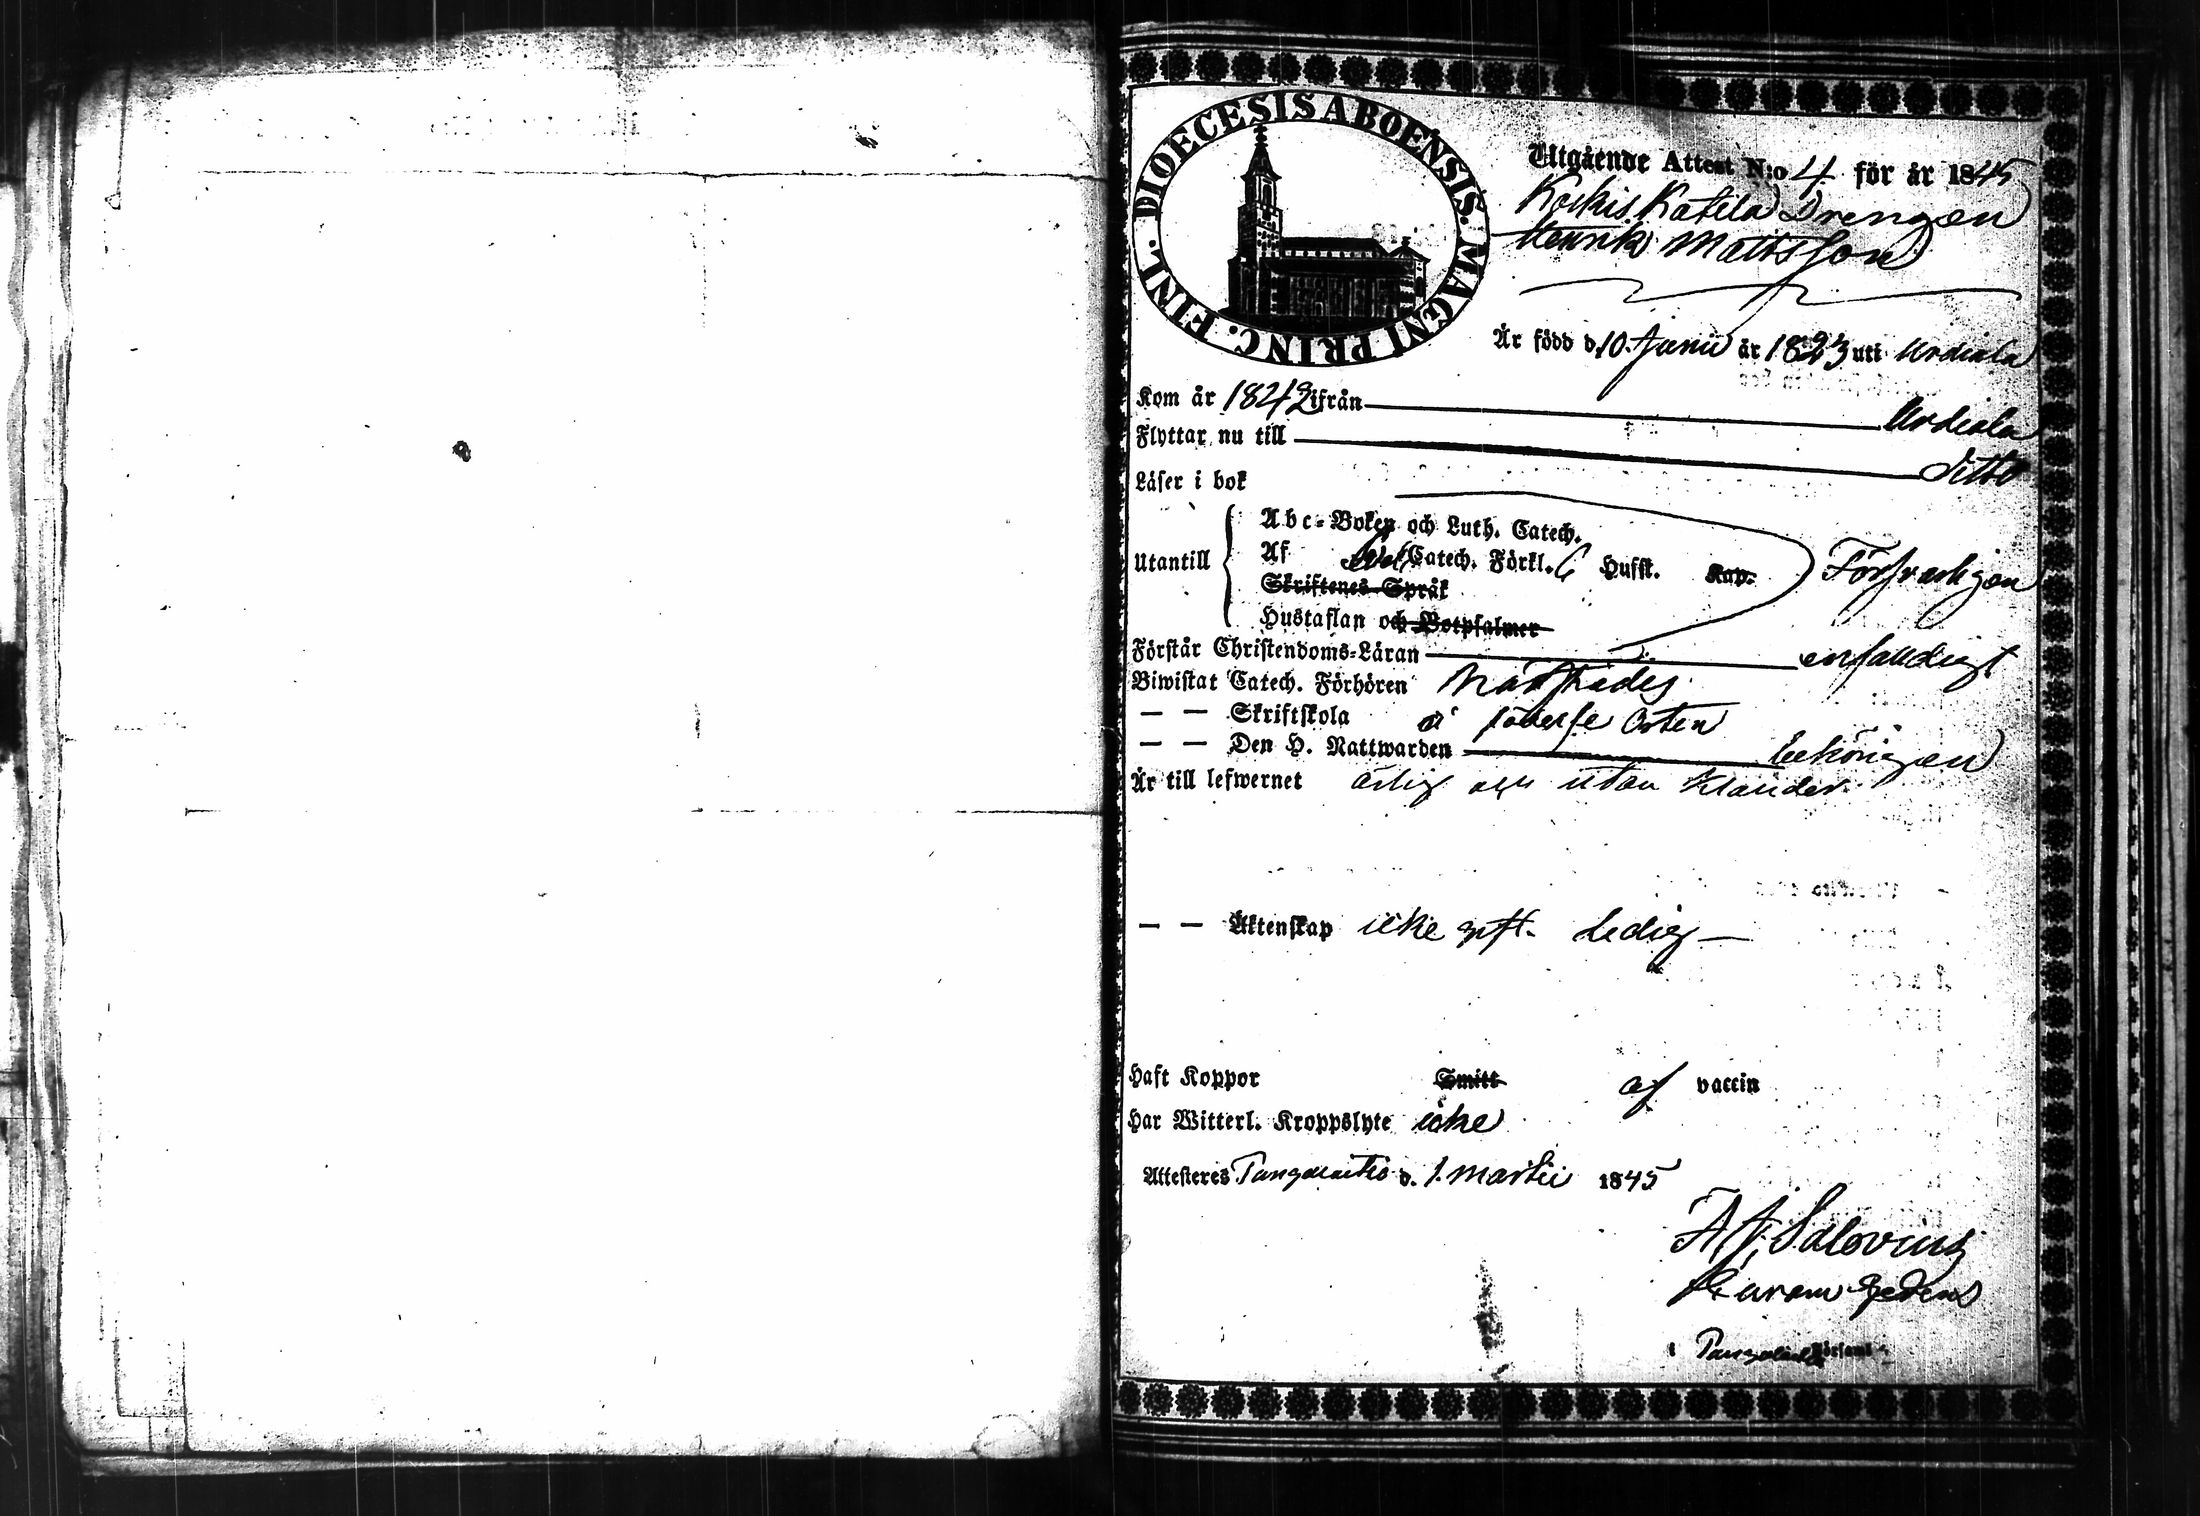 DIOECESIS ABOENSIS. MAGNI PRINC. FINL.
Utgående Attest N:o 4 för år 1845
Kockis Katila Drengen
Henrik Mattsson
Är född d. 10. Junii år 1823 uti Urdiala
Kom år 1842 ifrån Urdiala
Flyttar nu till ditto
Läser i bok
Utantill
Abc-Boken och Luth. Catech.
Af Catech. Förkl. 6 Hufst. Kap.
Skriftenes Språk
Hustaflan och Botpsalmer
Försvarligen
Förstår Christendoms-Läran enfaldigt
Biwistat Catech. Förhören
— — Skriftskola å orten
— — Den H. Nattwarden behörigen
Är till lefwernet ärlig och utan klander.
— — Äktenskap icke gift. Ledig —
Haft Koppor Smitt af vaccin
Har Witterl. Kroppslyte icke
Attesteres d. 1. Martii 1845
Salovius